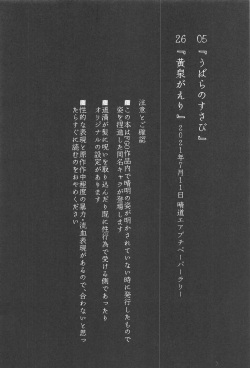 05『うばらのすさび』
26『黄泉がえり』2021年7月11日 晴道エアプチペーパーラリー
注意とご確認
■この本はFGO作品内で晴明の姿が明かされていない時に発行したもので
姿を捏造した同名キャラが登場します
■道満が髪に呪いを取り込んだり既に性行為で受ける側であったり
オリジナルの設定があります
■性的な表現と原作作中程度の暴力・流血表現があるので、合わないと思っ
たらすぐに読むのをおやめください